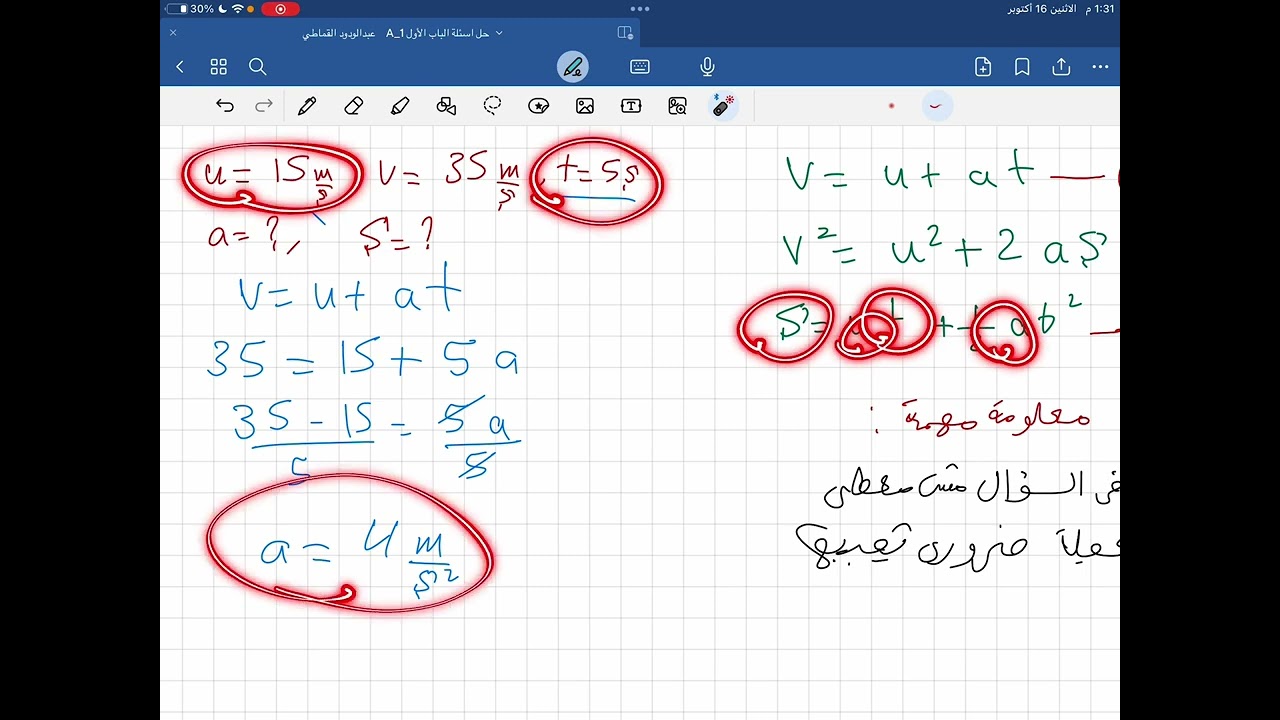 30%
1:31 م الاثنين 16 أكتوبر
حل اسئلة الباب الأول A_1 عبدالودود القماطي
u = 15 m/s v = 35 m/s, t = 5s
a = ?, S = ?
v = u + at
35 = 15 + 5 a
35 - 15 / 5 = 5 a / 5
a = 4 m/s²
v = u + at
v² = u² + 2 a S
S = ut + ½ at²
معلومة مهمة :
السؤال مش معطي
ضروري تجيبها